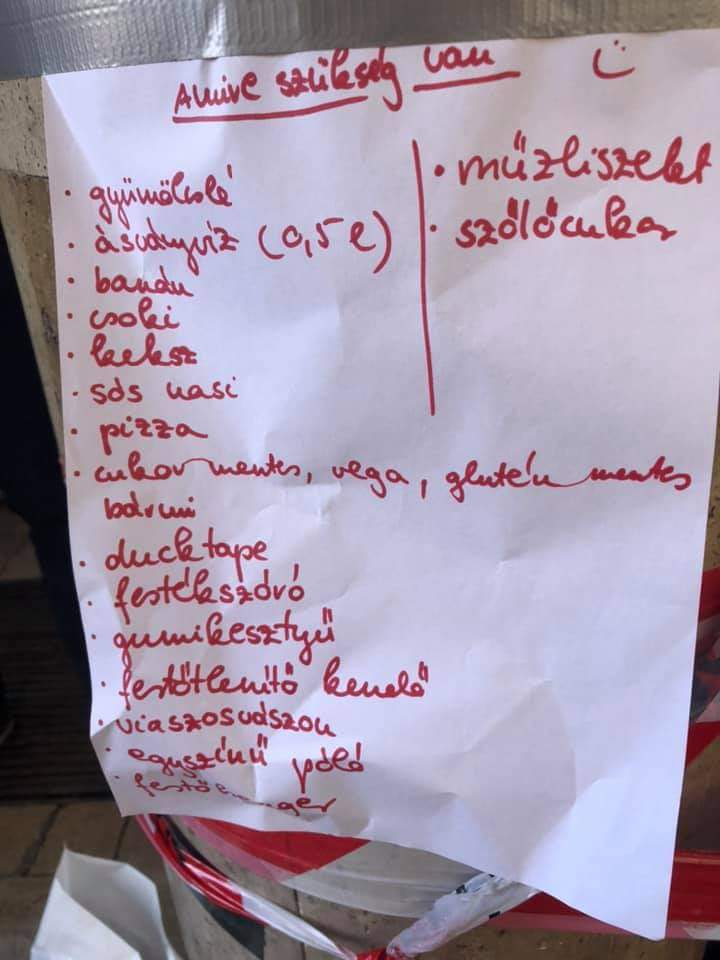 Amire szükség van
• gyümölcslé
• ásványvíz (0,5 l)
• banán
• csoki
• keksz
• sós nasi
• pizza
• cukormentes, vega, gluténmentes
bármi
• ducktape
• festékszóró
• gumikesztyű
• fertőtlenítő kendő
• viaszosvászon
• egyszínű póló
• festőhenger
• müzliszelet
• szőlőcukor